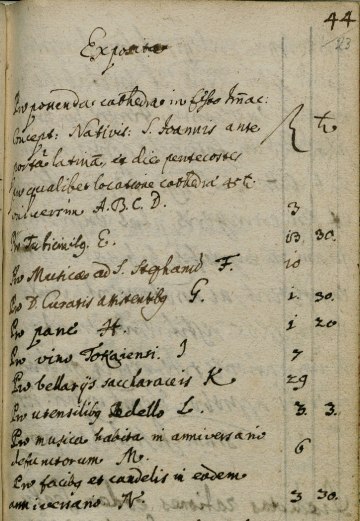 44
23
Exposita
Pro ponenda cathedra in festo Im̃ac:
Concept: Nativit: S. Joannis ante
portã latinã, et die pentecostes
pro qualibet locatione cathedræ 45 X
A. B. C. D. 3
Pro Tubicinibq E. 13 30.
Pro Musica ad S. Stephanũ F. 10
Pro D. Curatis assistentibq G. 1 30.
Pro pane H. 1 20
Pro vino Tokaiensi. I 7
Pro bellarijs saccharaceis K 29
Pro utensilibq Bedello L. 3 3.
Pro musica habita in anniversario
defunctorum M. 6
Pro facibq et candelis in eodem
anniversario N 3 30.